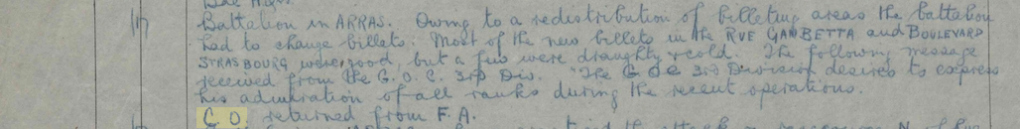 11th Battalion in ARRAS. Owing to a redistribution of billeting areas the battalion
had to change billets. Most of the new billets in the RUE GAMBETTA and BOULEVARD
STRASBOURG were good, but a few were draughty & cold. The following message
received from the G.O.C. 3rd Div. "The G.O.C 3rd Division desires to express
his admiration of all ranks during the recent operations.
C O returned from F.A.